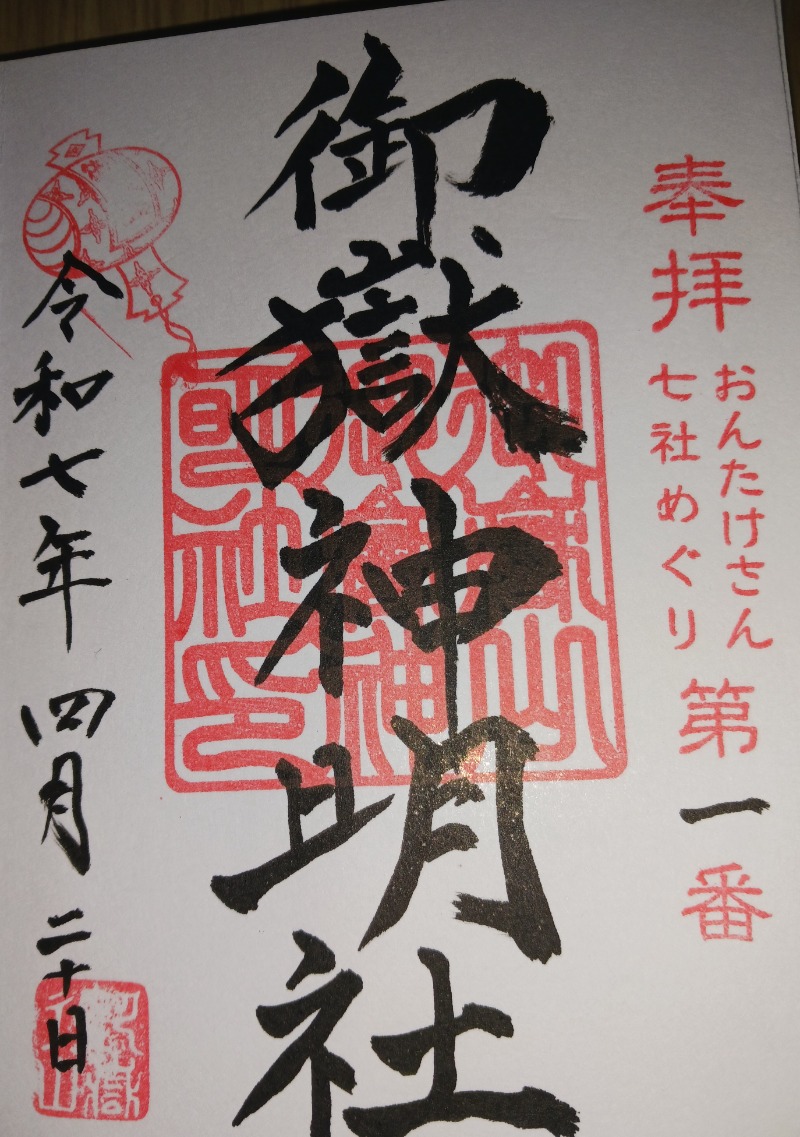 奉拝
おんたけさん
七社めぐり
第一番
御嶽神明社
令和七年四月二十日